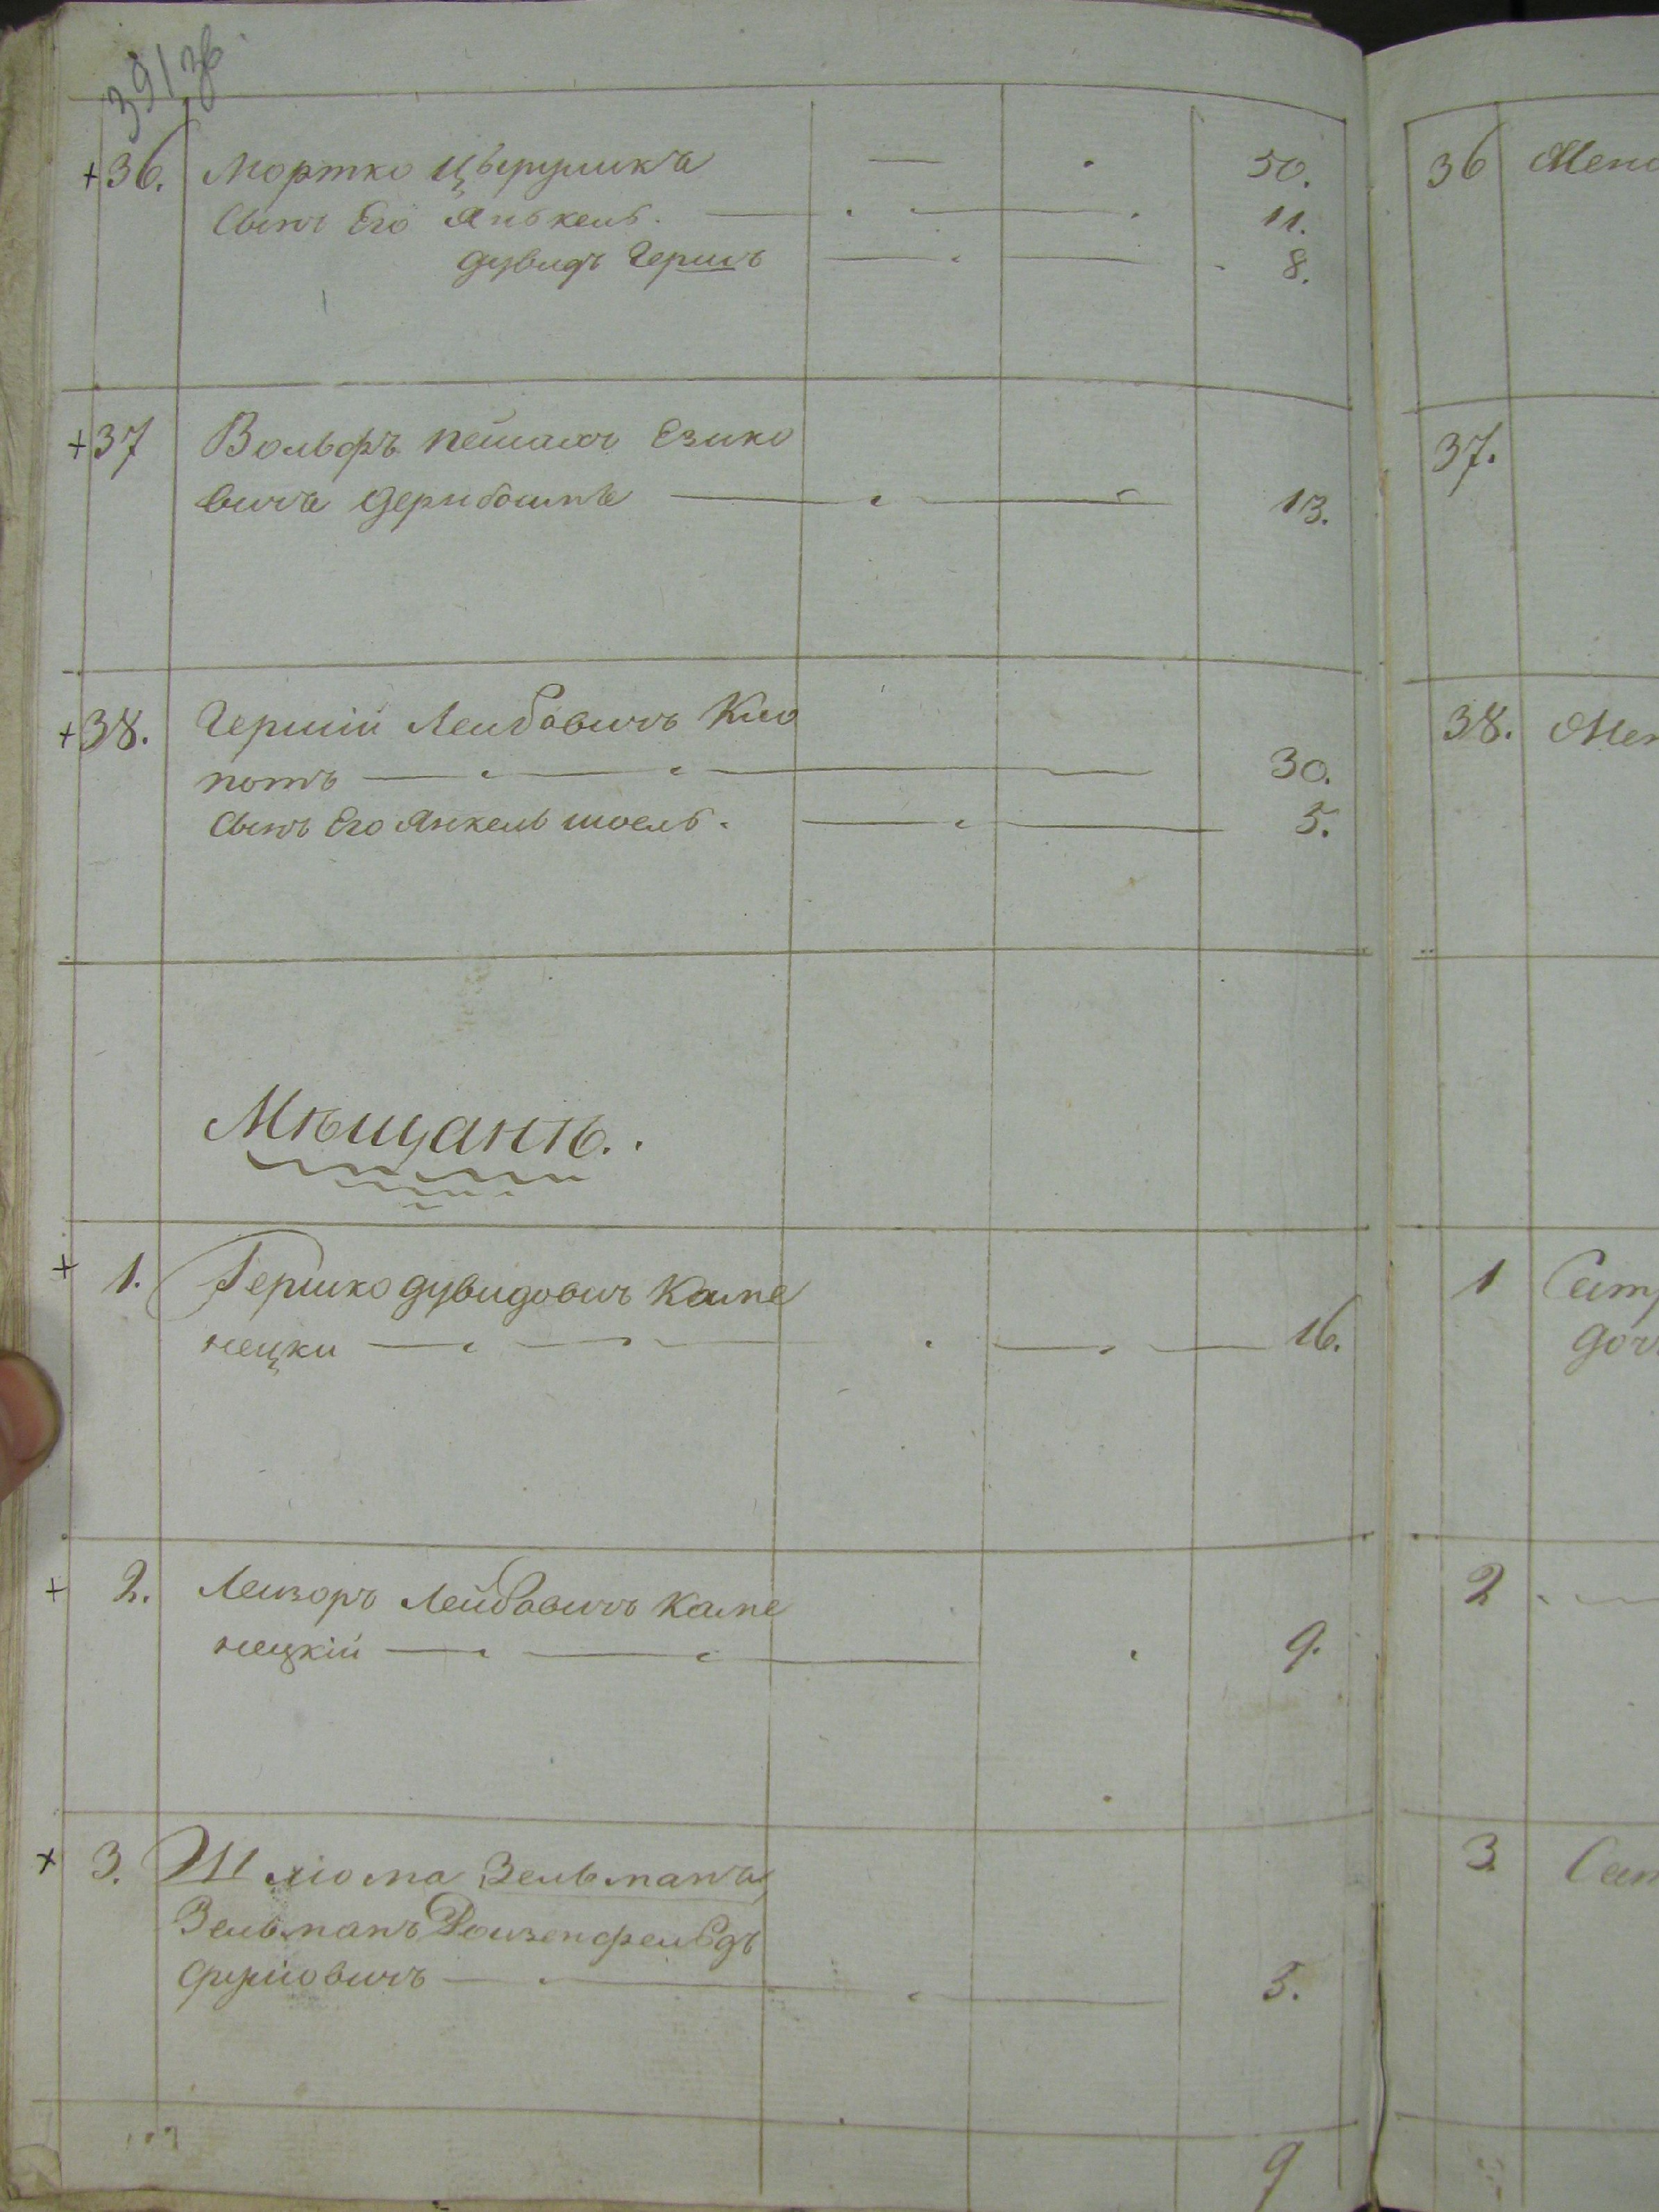 391 зв.
+36. Мортко Цыруликъ — . 50.
Сынъ Его Янькель. — . — . 11.
дувидъ Гершъ — . — . 8.
+37 Вольфъ пейсахъ Езико
вичъ Дерибошпъ — . — 13.
+38. Гершiй Леибовичъ Кио
потъ — . — . — 30.
Сынъ Его Янкель шоель. — . — 5.
Мѣщанѣ.
+ 1. Гершко дувидовичъ Каме
нецки — . — . — 16.
+ 2. Леизоръ Лейбовичъ Каме
нецкiй — . — . — . 9.
+ 3. Шлiома Зельманъ
Зельманъ Роизенфельдъ
Срулiовичъ — . — . — 5.
9
36 Мен
37.
38. Мен
1
2
3.